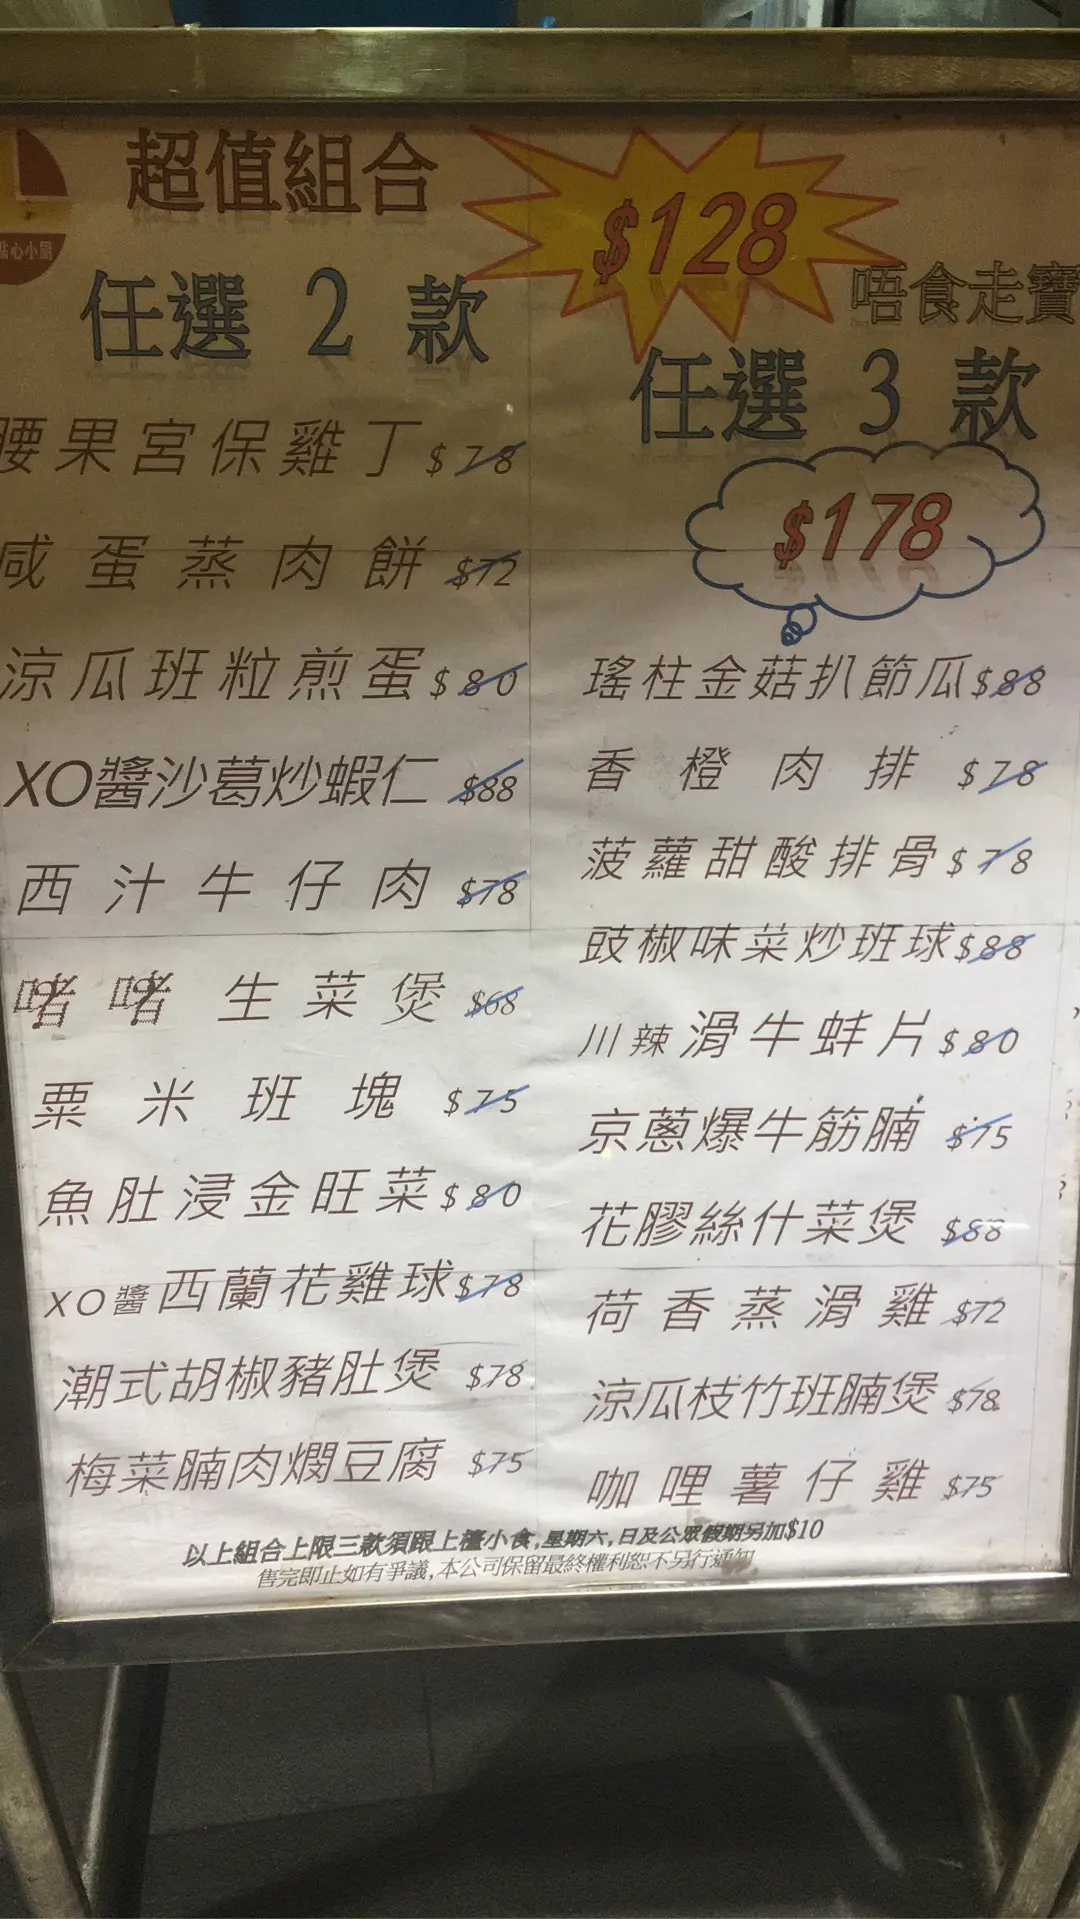 超值組合
$128
點心小廚
任選 2 款
唔食走寶
任選 3 款
$178
腰果宮保雞丁 $78
咸蛋蒸肉餅 $72
涼瓜班粒煎蛋 $80
XO醬沙葛炒蝦仁 $88
西汁牛仔肉 $78
啫啫生菜煲 $68
粟米班塊 $75
魚肚浸金旺菜 $80
XO醬西蘭花雞球 $78
潮式胡椒豬肚煲 $78
梅菜腩肉燜豆腐 $75
瑤柱金菇扒節瓜 $88
香橙肉排 $78
菠蘿甜酸排骨 $78
豉椒味菜炒班球 $88
川辣滑牛蚌片 $80
京蔥爆牛筋腩 $75
花膠絲什菜煲 $88
荷香蒸滑雞 $72
涼瓜枝竹班腩煲 $78
咖哩薯仔雞 $75
以上組合上限三款須跟上檯小食,星期六,日及公眾假期另加$10
售完即止如有爭議,本公司保留最終權利恕不另行通知